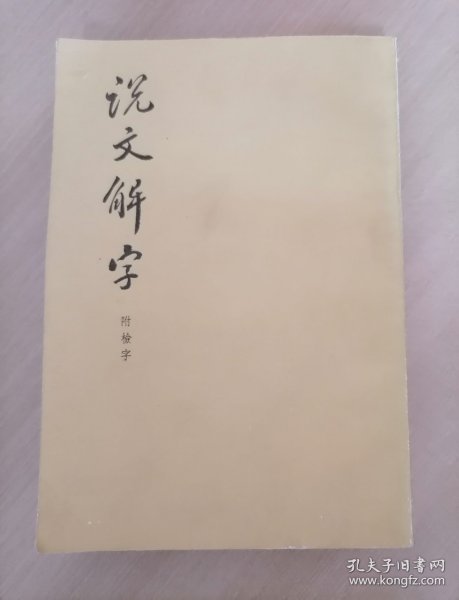 说文解字
附檢字
孔夫子旧书网
www.kongfz.com